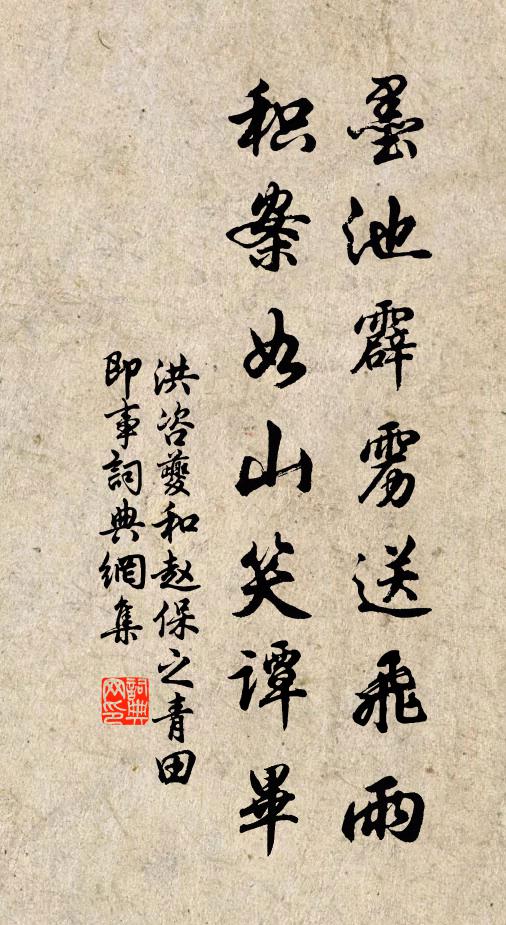 墨池霹雳送飛雨
积案如山笑譚畢
洪咨夔和赵保之青田
即事詞典網集
詞典网印